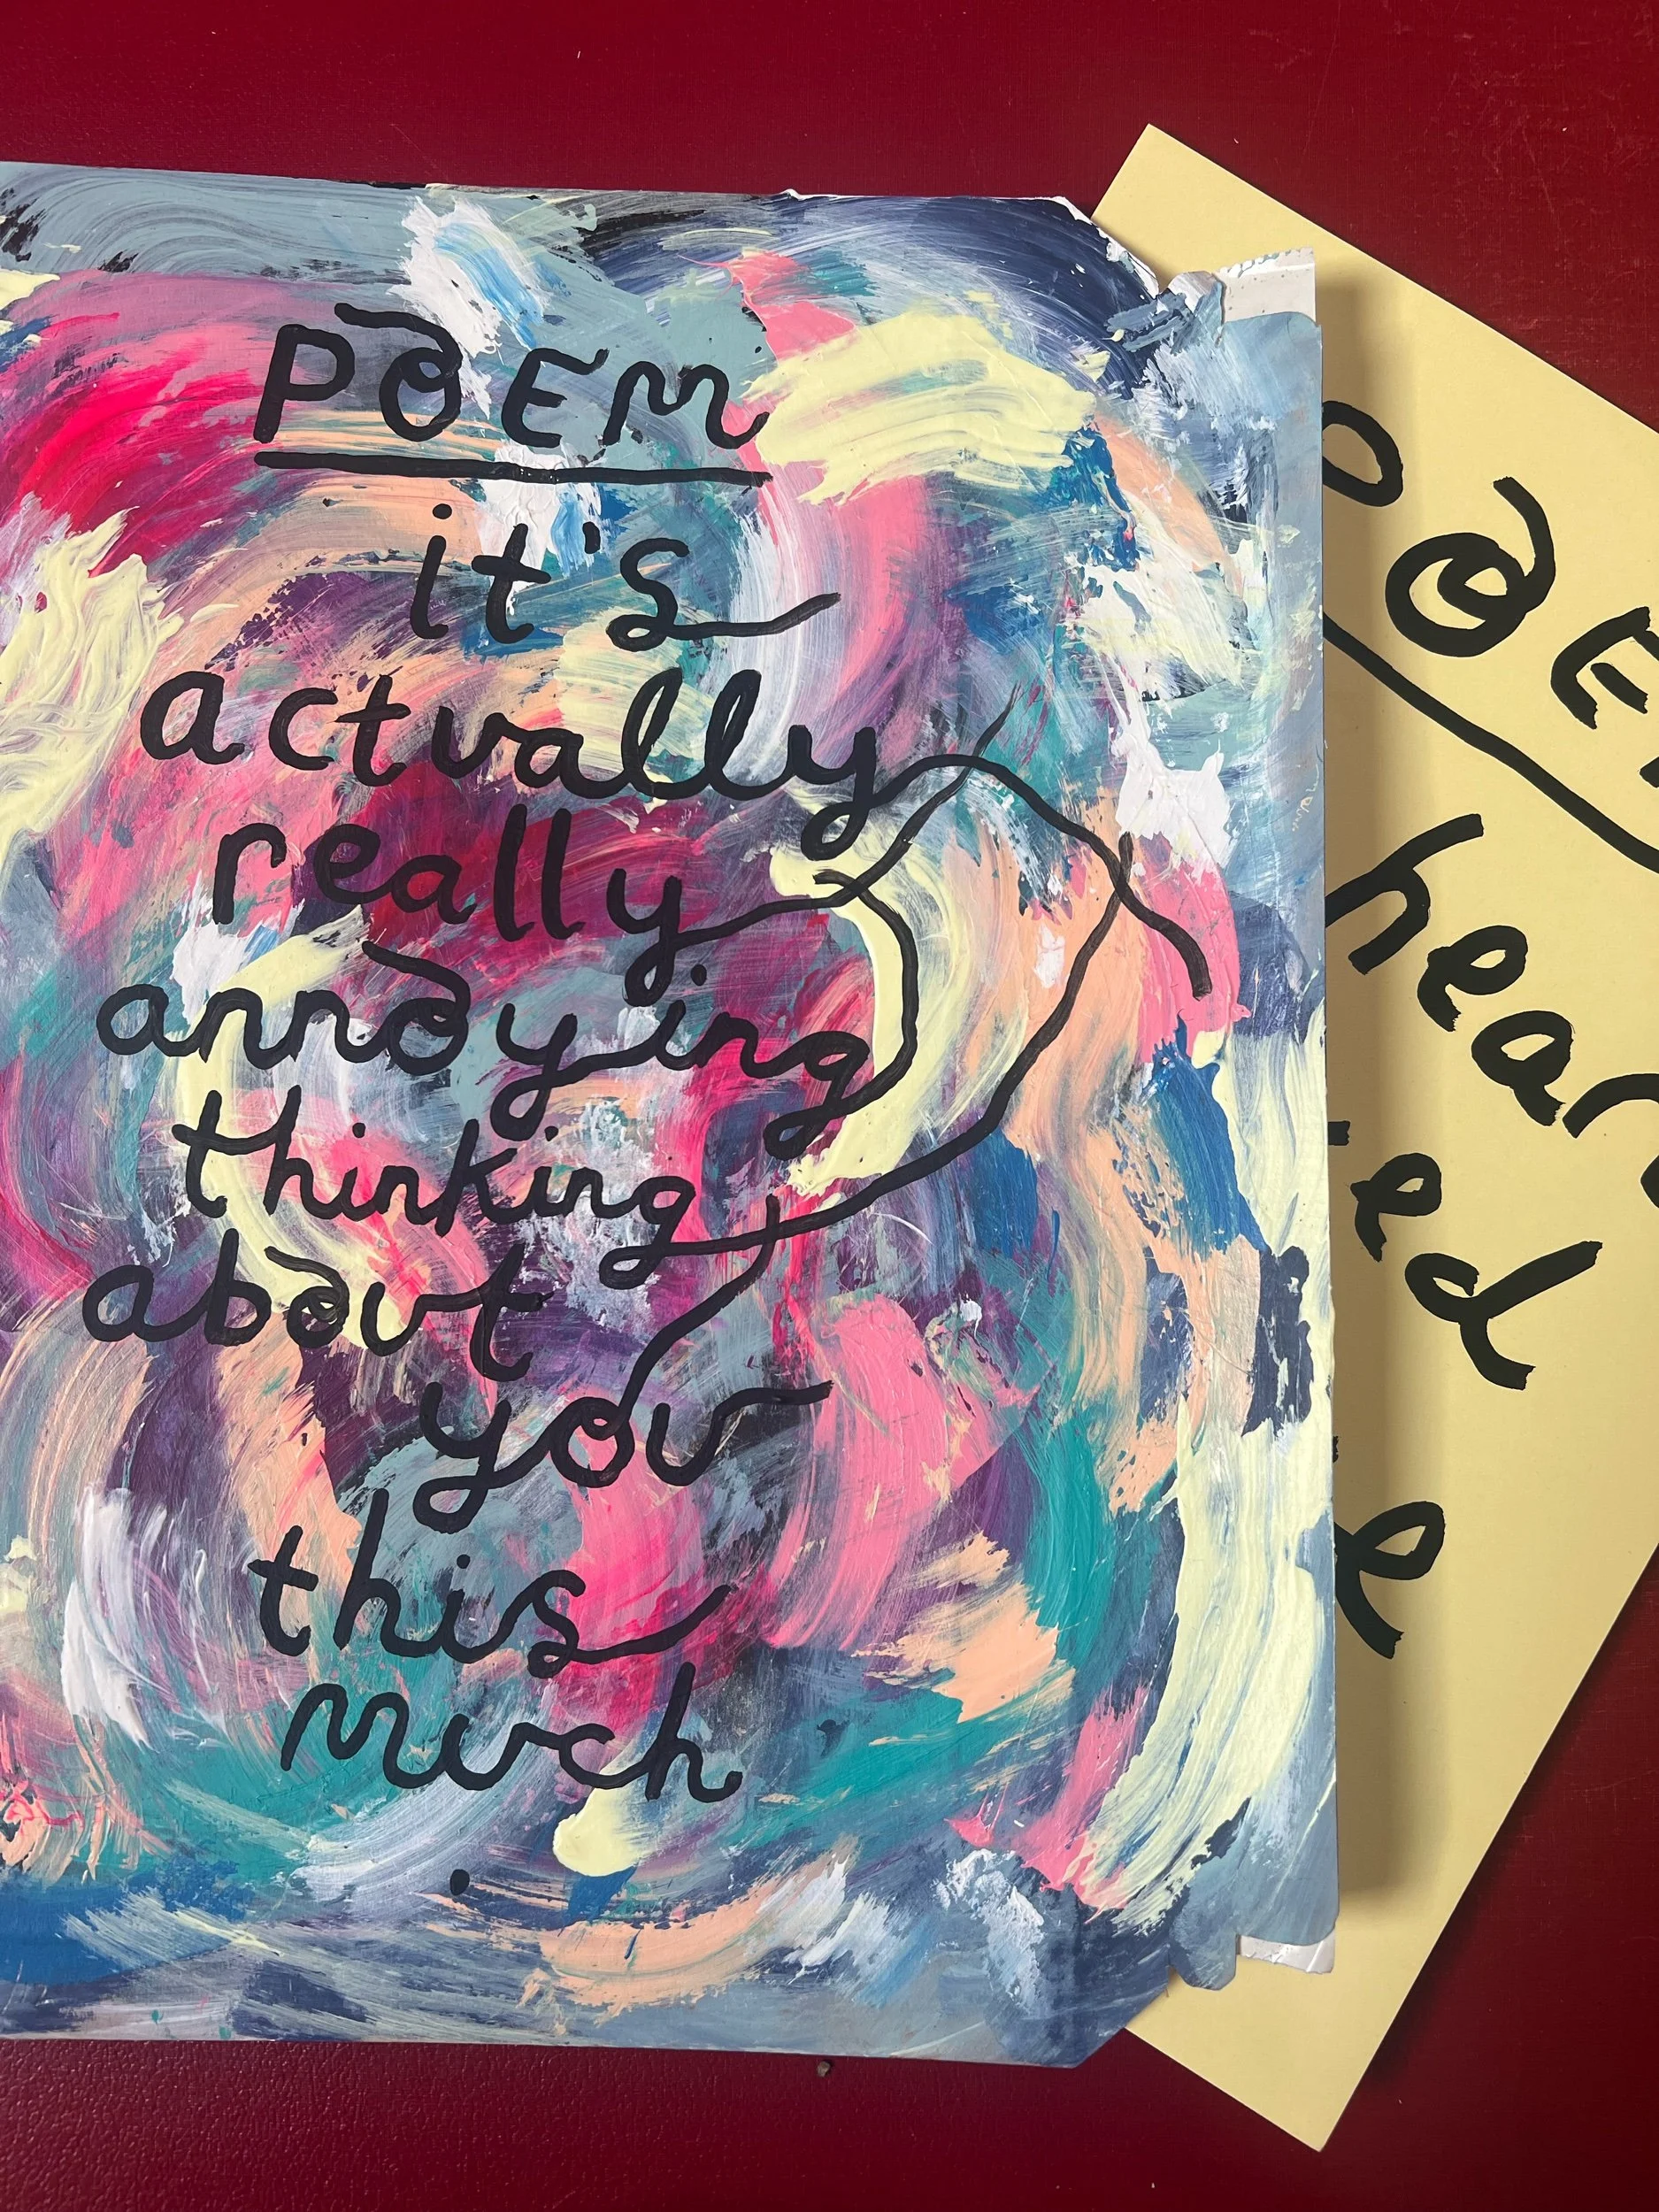 POEM
it's
actually
really
annoying
thinking
about
you
this
much
.
POEM
hear
ed
e